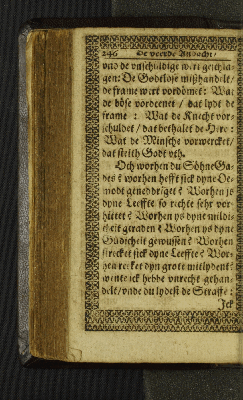 246 De veerde Andacht/
vnd de vnschüldige wert geschla-
gen: De Godtlose mißhandelt/
de frame wert vordömet: Wat
de böse vordeenet / dat lydt de
frame : Wat de Knecht vor-
schuldet / dat bethalet de Here :
Wat de Minsche vorwercket/
dat steith Godt vth.
Och worhen du Söhne Ga-
des? worhen hefft sick dyne De-
modt genedriget? Worhen is
dyne Leeffte so richte sehr vor-
hittet? Worhen ys dyne mildi-
cheit geraden? Worhen ys dyne
Güdicheit gewussen? Worhen
strecket sick dyne Leeffte? Wor-
hen recket dyn grote mitlydent?
wente ick hebbe vnrecht gehan-
delt / vnde du lydest de Straffe :
Ick